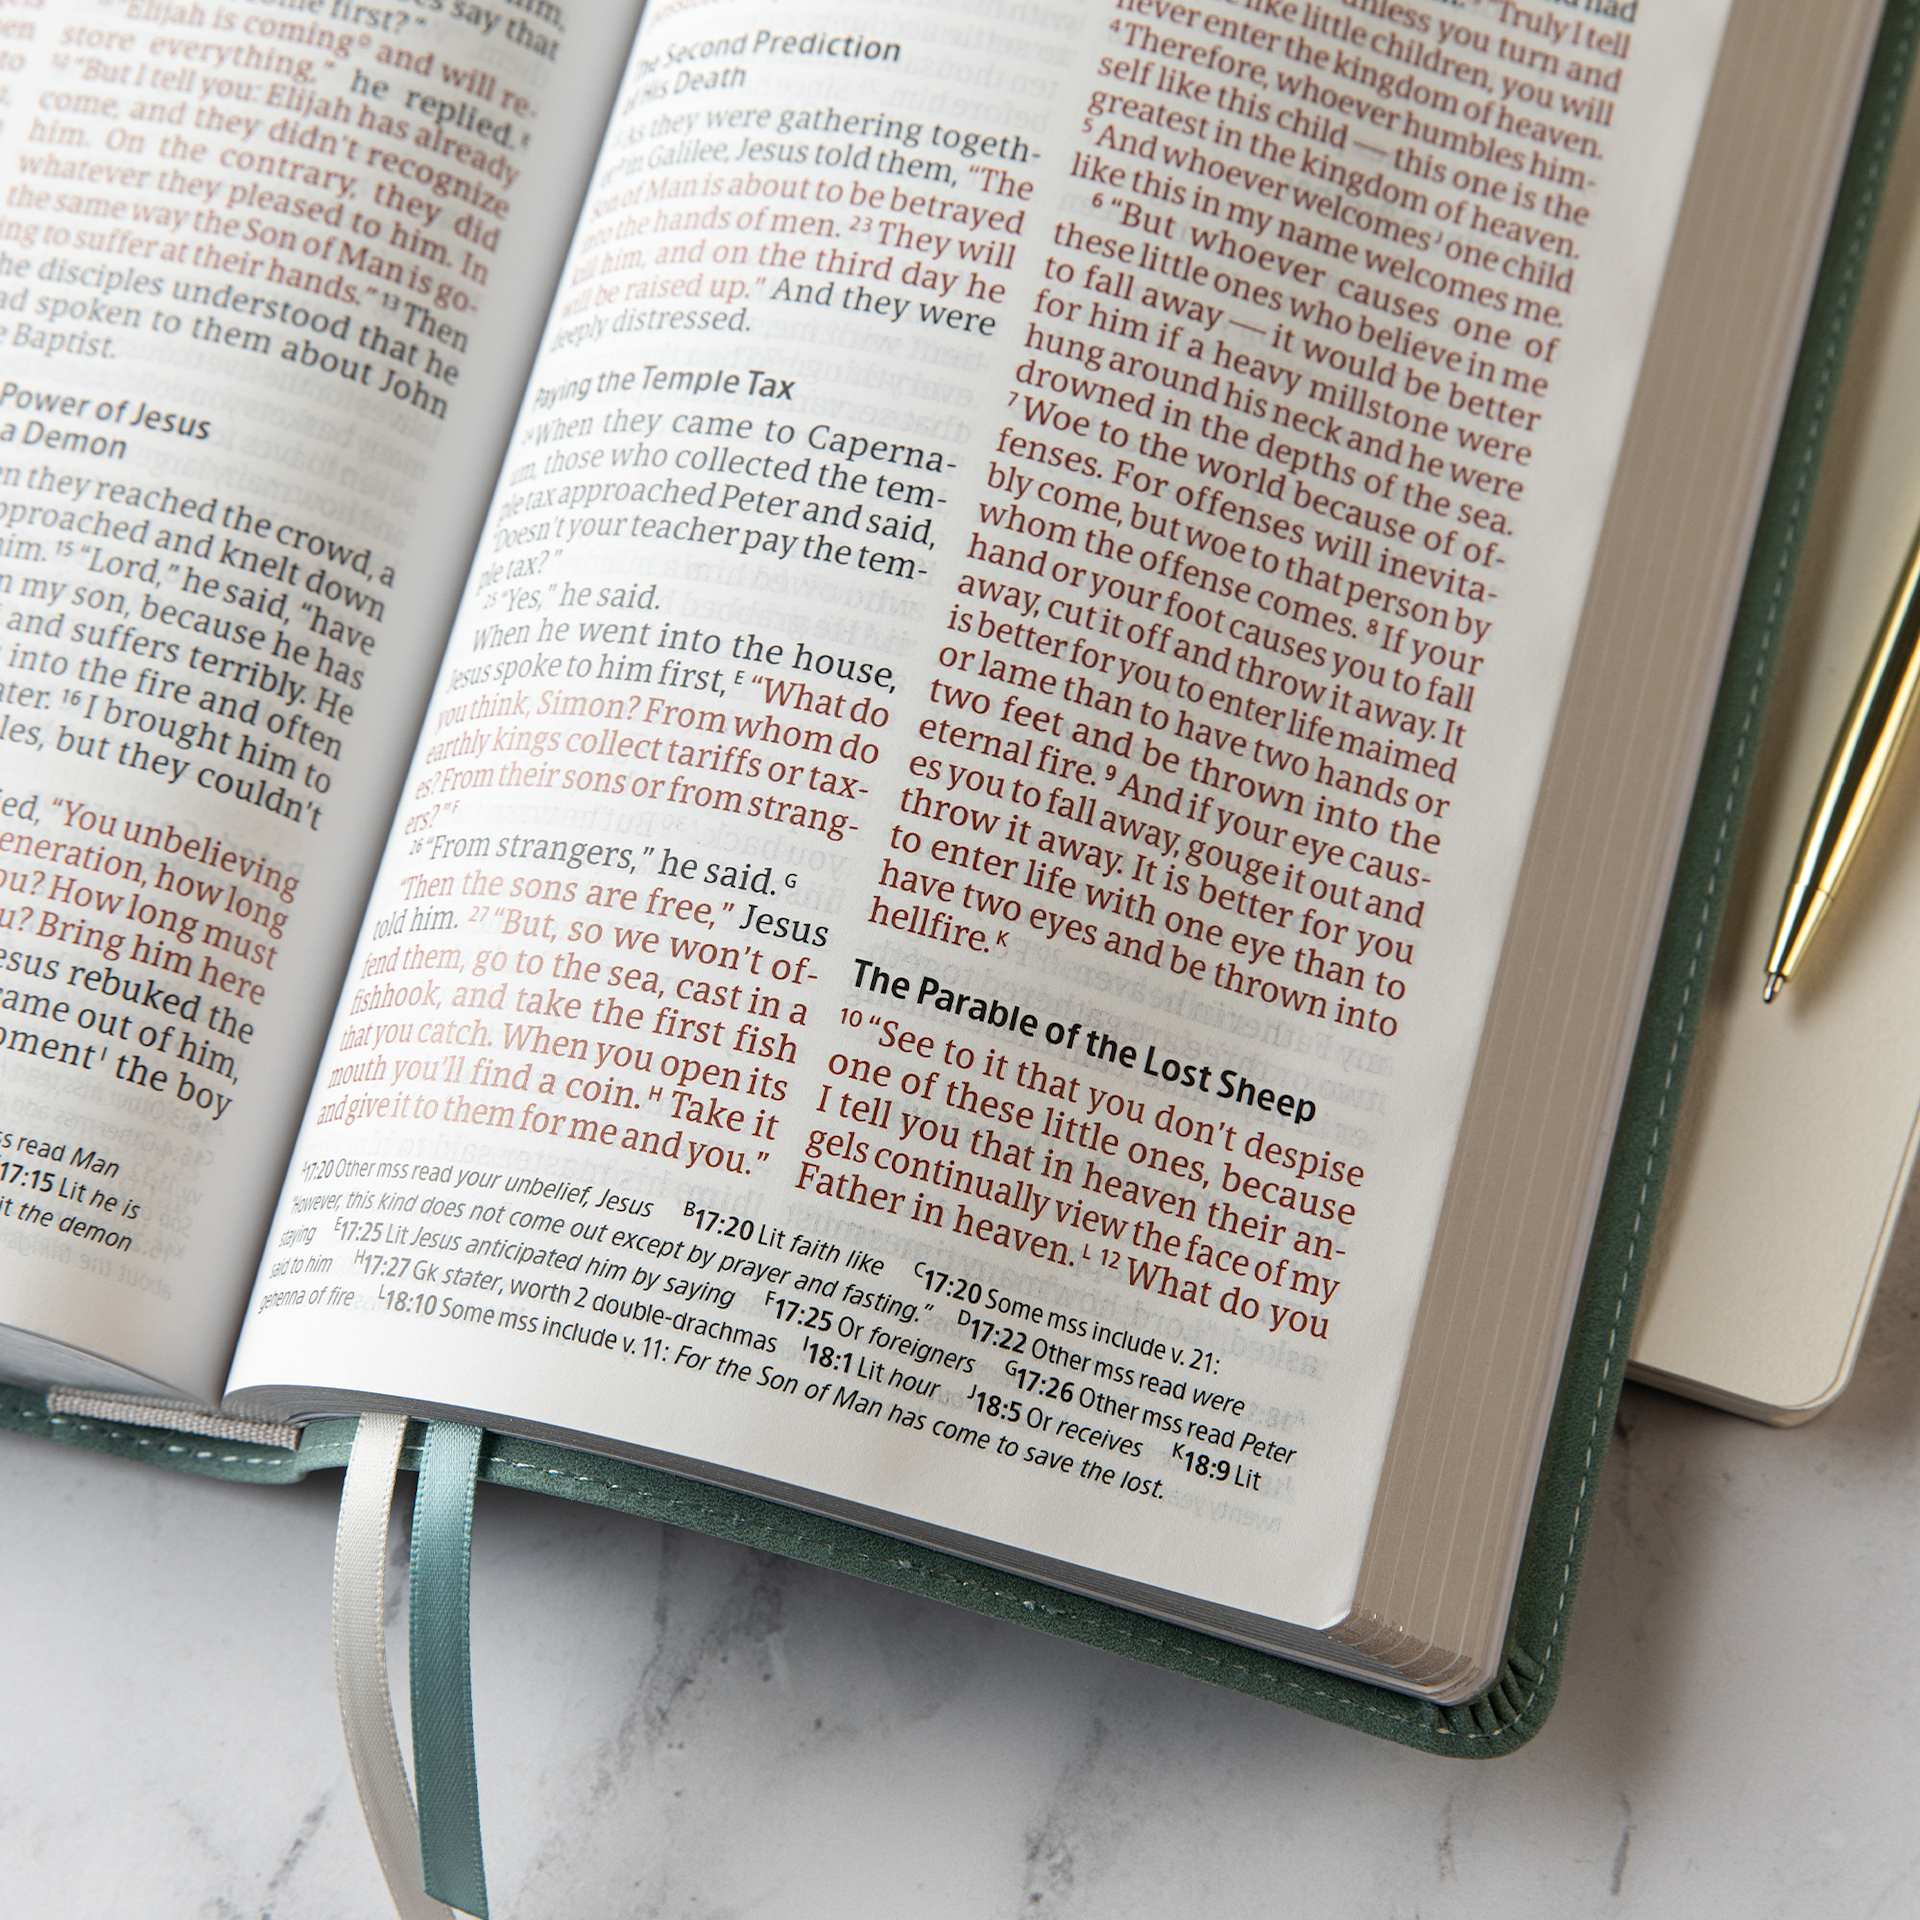 say that
come first?”
“Elijah is coming ᴰ and will re-
store everything,” he replied. ᴱ
¹² “But I tell you: Elijah has already
come, and they didn’t recognize
him. On the contrary, they did
whatever they pleased to him. In
the same way the Son of Man is go-
ing to suffer at their hands.” ¹³ Then
the disciples understood that he
had spoken to them about John
the Baptist.
Power of Jesus
a Demon
they reached the crowd, a
approached and knelt down
him. ¹⁵ “Lord,” he said, “have
on my son, because he has
and suffers terribly. He
into the fire and often
water. ¹⁶ I brought him to
but they couldn’t
“You unbelieving
generation, how long
you? How long must
you? Bring him here
Jesus rebuked the
came out of him,
moment ᴵ the boy
mss read Man
17:15 Lit he is
the demon
The Second Prediction
of His Death
As they were gathering togeth-
er ᴰ in Galilee, Jesus told them, “The
Son of Man is about to be betrayed
into the hands of men. ²³ They will
kill him, and on the third day he
will be raised up.” And they were
deeply distressed.
Paying the Temple Tax
²⁴ When they came to Caperna-
um, those who collected the tem-
ple tax approached Peter and said,
“Doesn’t your teacher pay the tem-
ple tax?”
²⁵ “Yes,” he said.
When he went into the house,
Jesus spoke to him first, ᴱ “What do
you think, Simon? From whom do
earthly kings collect tariffs or tax-
es? From their sons or from strang-
ers?” ꟳ
²⁶ “From strangers,” he said. ᴳ
“Then the sons are free,” Jesus
told him. ²⁷ “But, so we won’t of-
fend them, go to the sea, cast in a
fishhook, and take the first fish
that you catch. When you open its
mouth you’ll find a coin. ᴴ Take it
and give it to them for me and you.”
had
“Truly I tell
unless you turn and
like little children, you will
never enter the kingdom of heaven.
⁴ Therefore, whoever humbles him-
self like this child — this one is the
greatest in the kingdom of heaven.
⁵ And whoever welcomes ᴶ one child
like this in my name welcomes me.
⁶ “But whoever causes one of
these little ones who believe in me
to fall away — it would be better
for him if a heavy millstone were
hung around his neck and he were
drowned in the depths of the sea.
⁷ Woe to the world because of of-
fenses. For offenses will inevita-
bly come, but woe to that person by
whom the offense comes. ⁸ If your
hand or your foot causes you to fall
away, cut it off and throw it away. It
is better for you to enter life maimed
or lame than to have two hands or
two feet and be thrown into the
eternal fire. ⁹ And if your eye caus-
es you to fall away, gouge it out and
throw it away. It is better for you
to enter life with one eye than to
have two eyes and be thrown into
hellfire. ᴷ
The Parable of the Lost Sheep
¹⁰ “See to it that you don’t despise
one of these little ones, because
I tell you that in heaven their an-
gels continually view the face of my
Father in heaven. ᴸ ¹² What do you
ᴬ17:20 Other mss read your unbelief, Jesus ᴮ17:20 Lit faith like ꟲ17:20 Some mss include v. 21:
“However, this kind does not come out except by prayer and fasting.” ᴰ17:22 Other mss read were
staying ᴱ17:25 Lit Jesus anticipated him by saying ꟳ17:25 Or foreigners ᴳ17:26 Other mss read Peter
said to him ᴴ17:27 Gk stater, worth 2 double-drachmas ᴵ18:1 Lit hour ᴶ18:5 Or receives ᴷ18:9 Lit
gehenna of fire ᴸ18:10 Some mss include v. 11: For the Son of Man has come to save the lost.